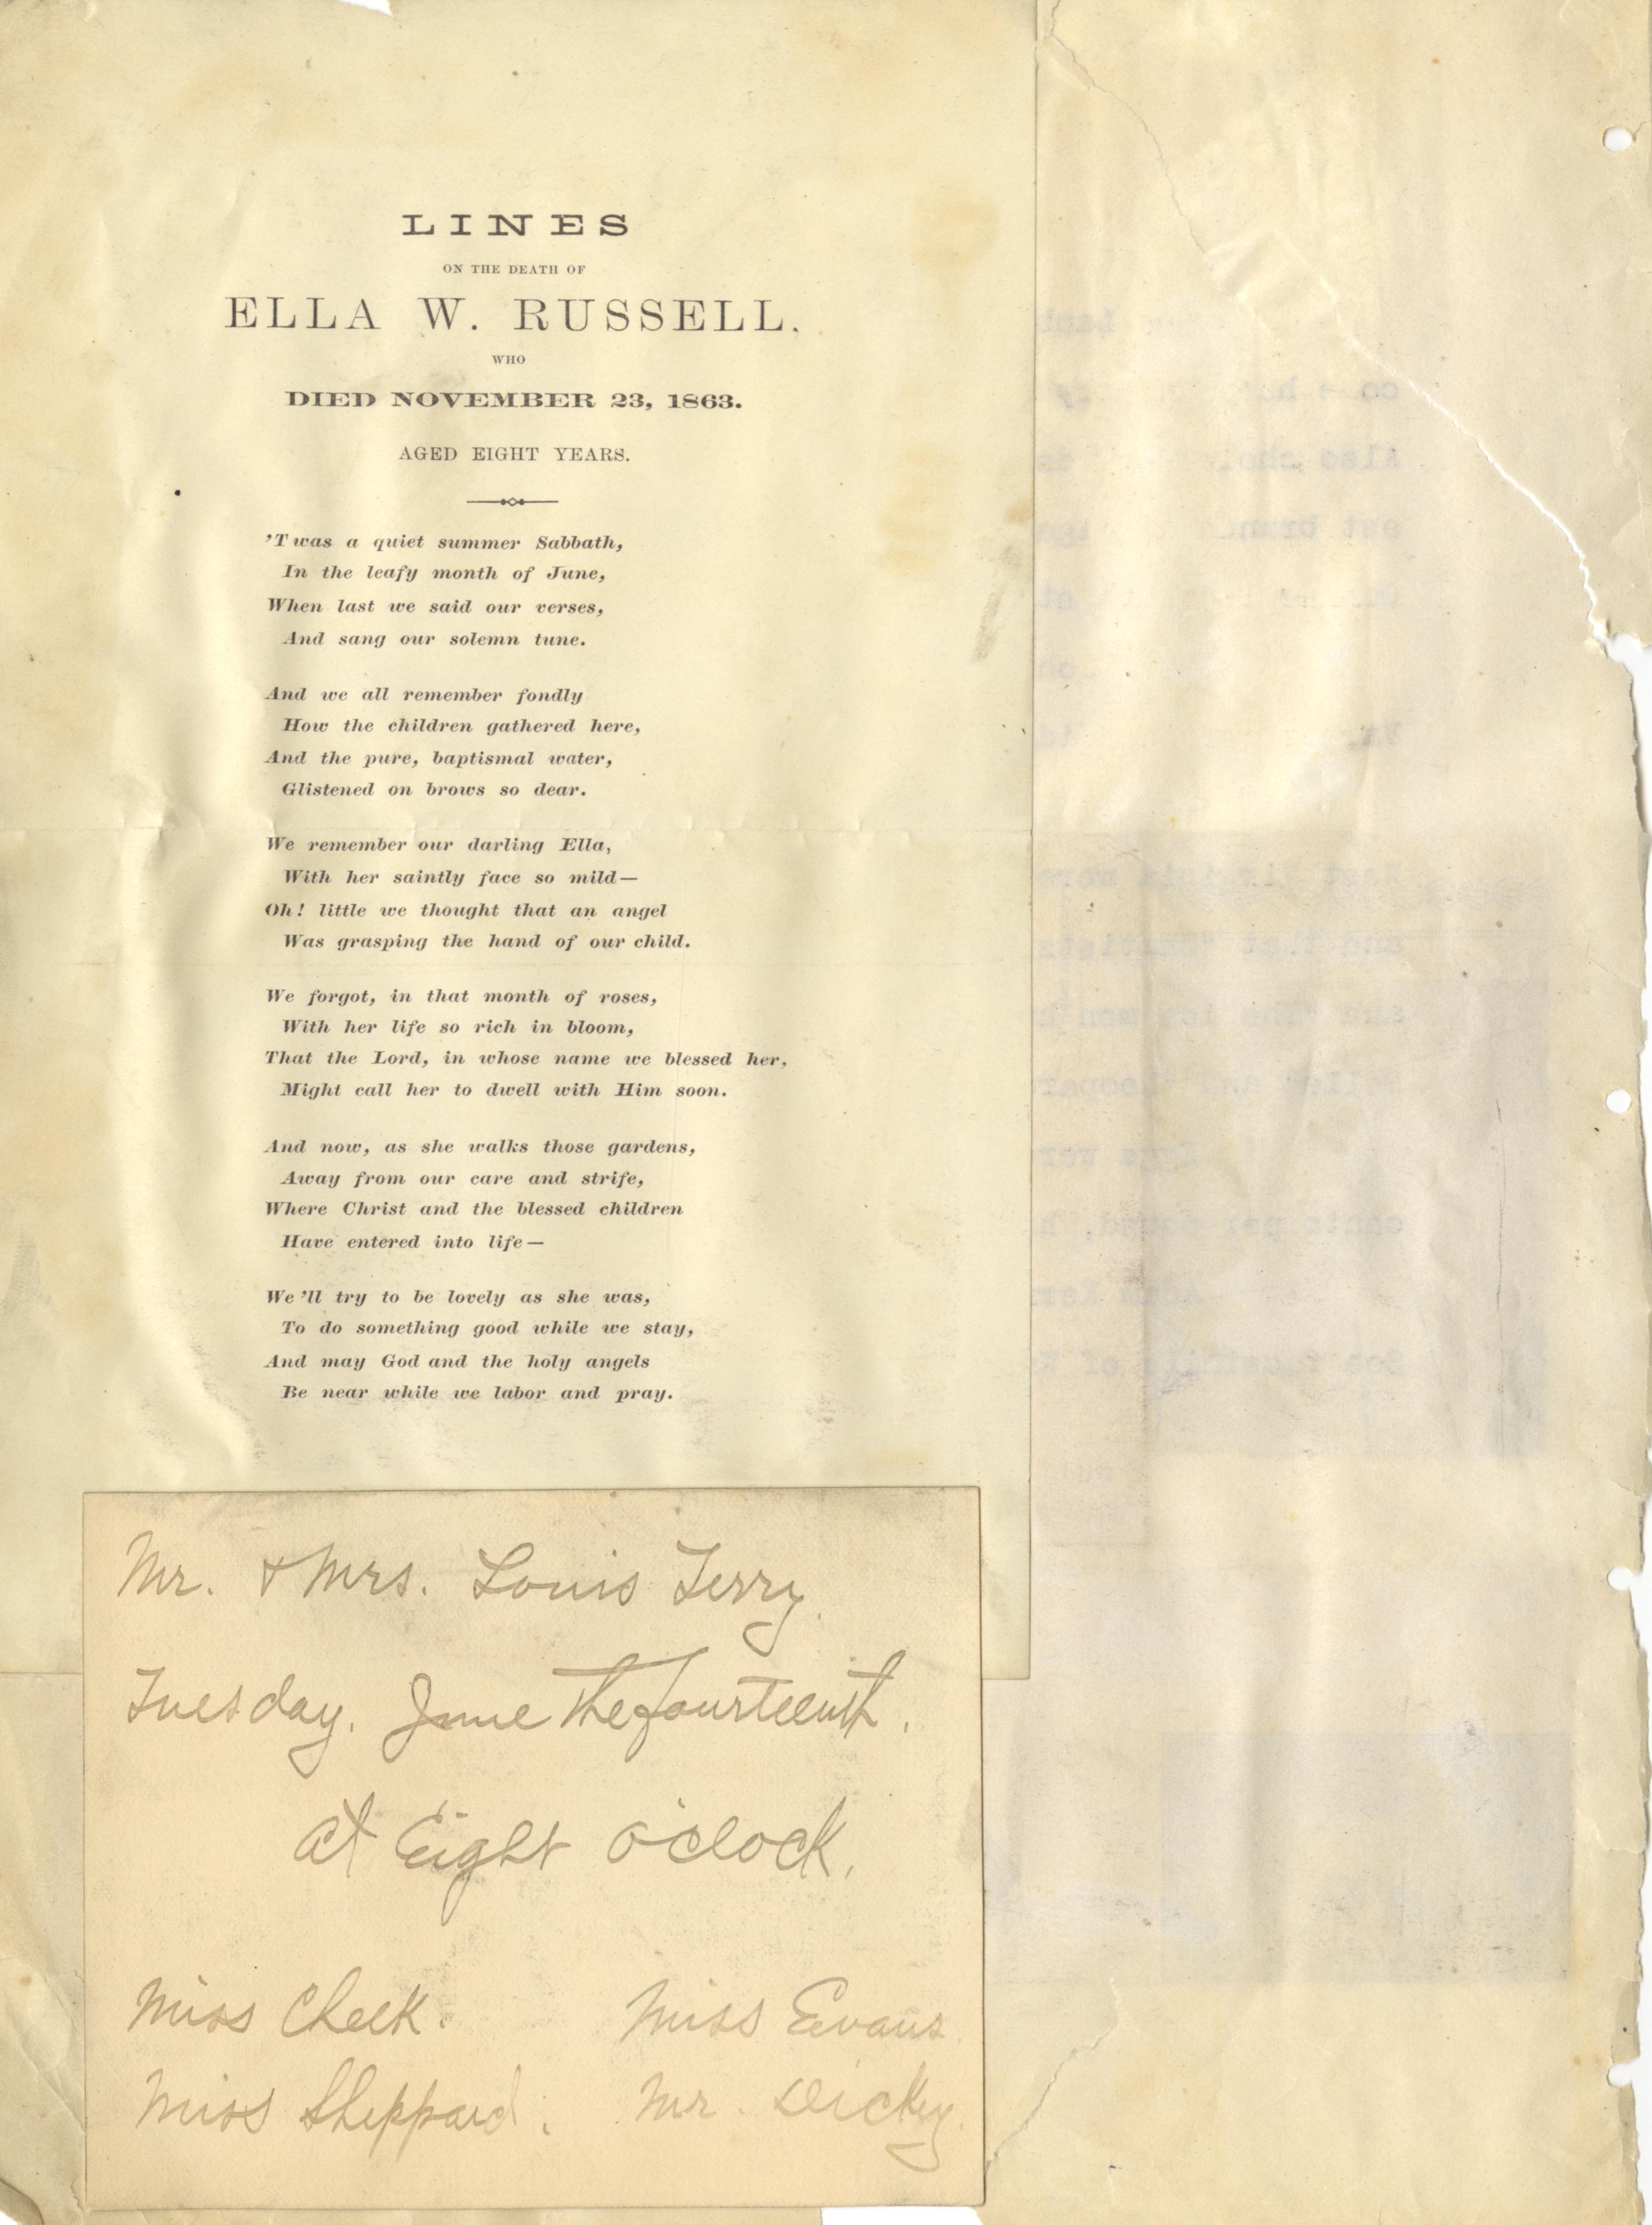 LINES
ON THE DEATH OF
ELLA W. RUSSELL,
WHO
DIED NOVEMBER 23, 1863.
AGED EIGHT YEARS.
'Twas a quiet summer Sabbath,
In the leafy month of June,
When last we said our verses,
And sang our solemn tune.
And we all remember fondly
How the children gathered here,
And the pure, baptismal water,
Glistened on brows so dear.
We remember our darling Ella,
With her saintly face so mild—
Oh! little we thought that an angel
Was grasping the hand of our child.
We forgot, in that month of roses,
With her life so rich in bloom,
That the Lord, in whose name we blessed her,
Might call her to dwell with Him soon.
And now, as she walks those gardens,
Away from our care and strife,
Where Christ and the blessed children
Have entered into life—
We'll try to be lovely as she was,
To do something good while we stay,
And may God and the holy angels
Be near while we labor and pray.
Mr. & Mrs. Louis Terry.
Tuesday. June the fourteenth.
at Eight o'clock.
Miss Cheek. Miss Evans
Miss Sheppard. Mr. Dicky.